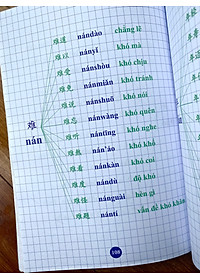 难道 nándào chẳng lẽ
难以 nányǐ khó mà
难受 nánshòu khó chịu
难免 nánmiǎn khó tránh
难说 nánshuō khó nói
难忘 nánwàng khó quên
难 nán
难听 nántīng khó nghe
难熬 nán'áo khó khổ
难看 nánkàn khó coi
难度 nándù độ khó
难怪 nánguài hèn gì
难题 nántí vấn đề khó khăn
108